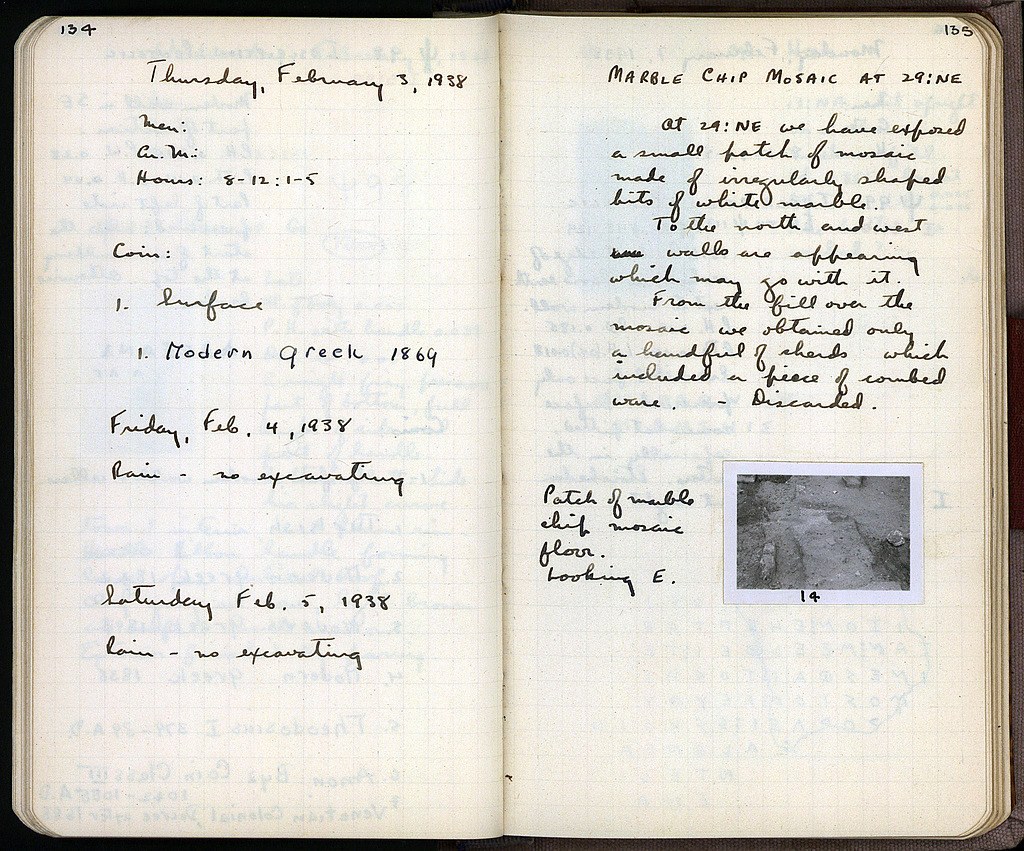 134
Thursday, February 3, 1938
Men:
Ar. M.:
Hours: 8-12: 1-5
Coin:
1. Surface
1. Modern Greek 1869
Friday, Feb. 4, 1938
Rain - no excavating
Saturday Feb. 5, 1938
Rain - no excavating
135
MARBLE CHIP MOSAIC AT 29:NE
At 29:NE we have exposed
a small patch of mosaic
made of irregularly shaped
bits of white marble.
To the north and west
walls are appearing
which may go with it.
From the fill over the
mosaic we obtained only
a handful of sherds which
included a piece of combed
ware. Discarded.
Patch of marble
chip mosaic
floor.
Looking E.
14